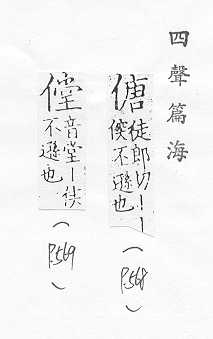 四聲篇海
傏徒郎切丨丨
不遜也
(P.568)
音堂丨
不遜也
(P.569)